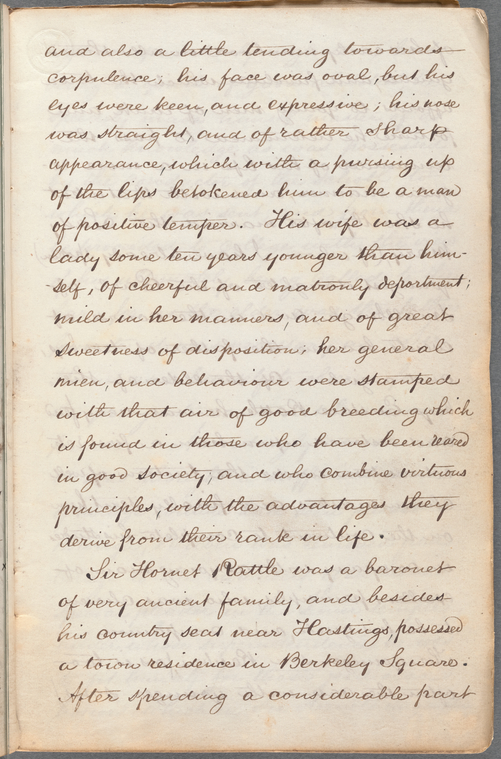 and also a little tending towards
corpulence; his face was oval, but his
eyes were keen, and expressive; his nose
was straight, and of rather sharp
appearance, which with a pursing up
of the lips betokened him to be a man
of positive temper. His wife was a
lady some ten years younger than him-
-self, of cheerful and matronly deportment;
mild in her manners, and of great
sweetness of disposition; her general
mien, and behaviour were stamped
with that air of good breeding which
is found in those who have been reared
in good society, and who combine virtuous
principles, with the advantages they
derive from their rank in life.
Sir Hornet Rattle was a baronet
of very ancient family, and besides
his country seat near Hastings, possessed
a town residence in Berkeley Square.
After spending a considerable part